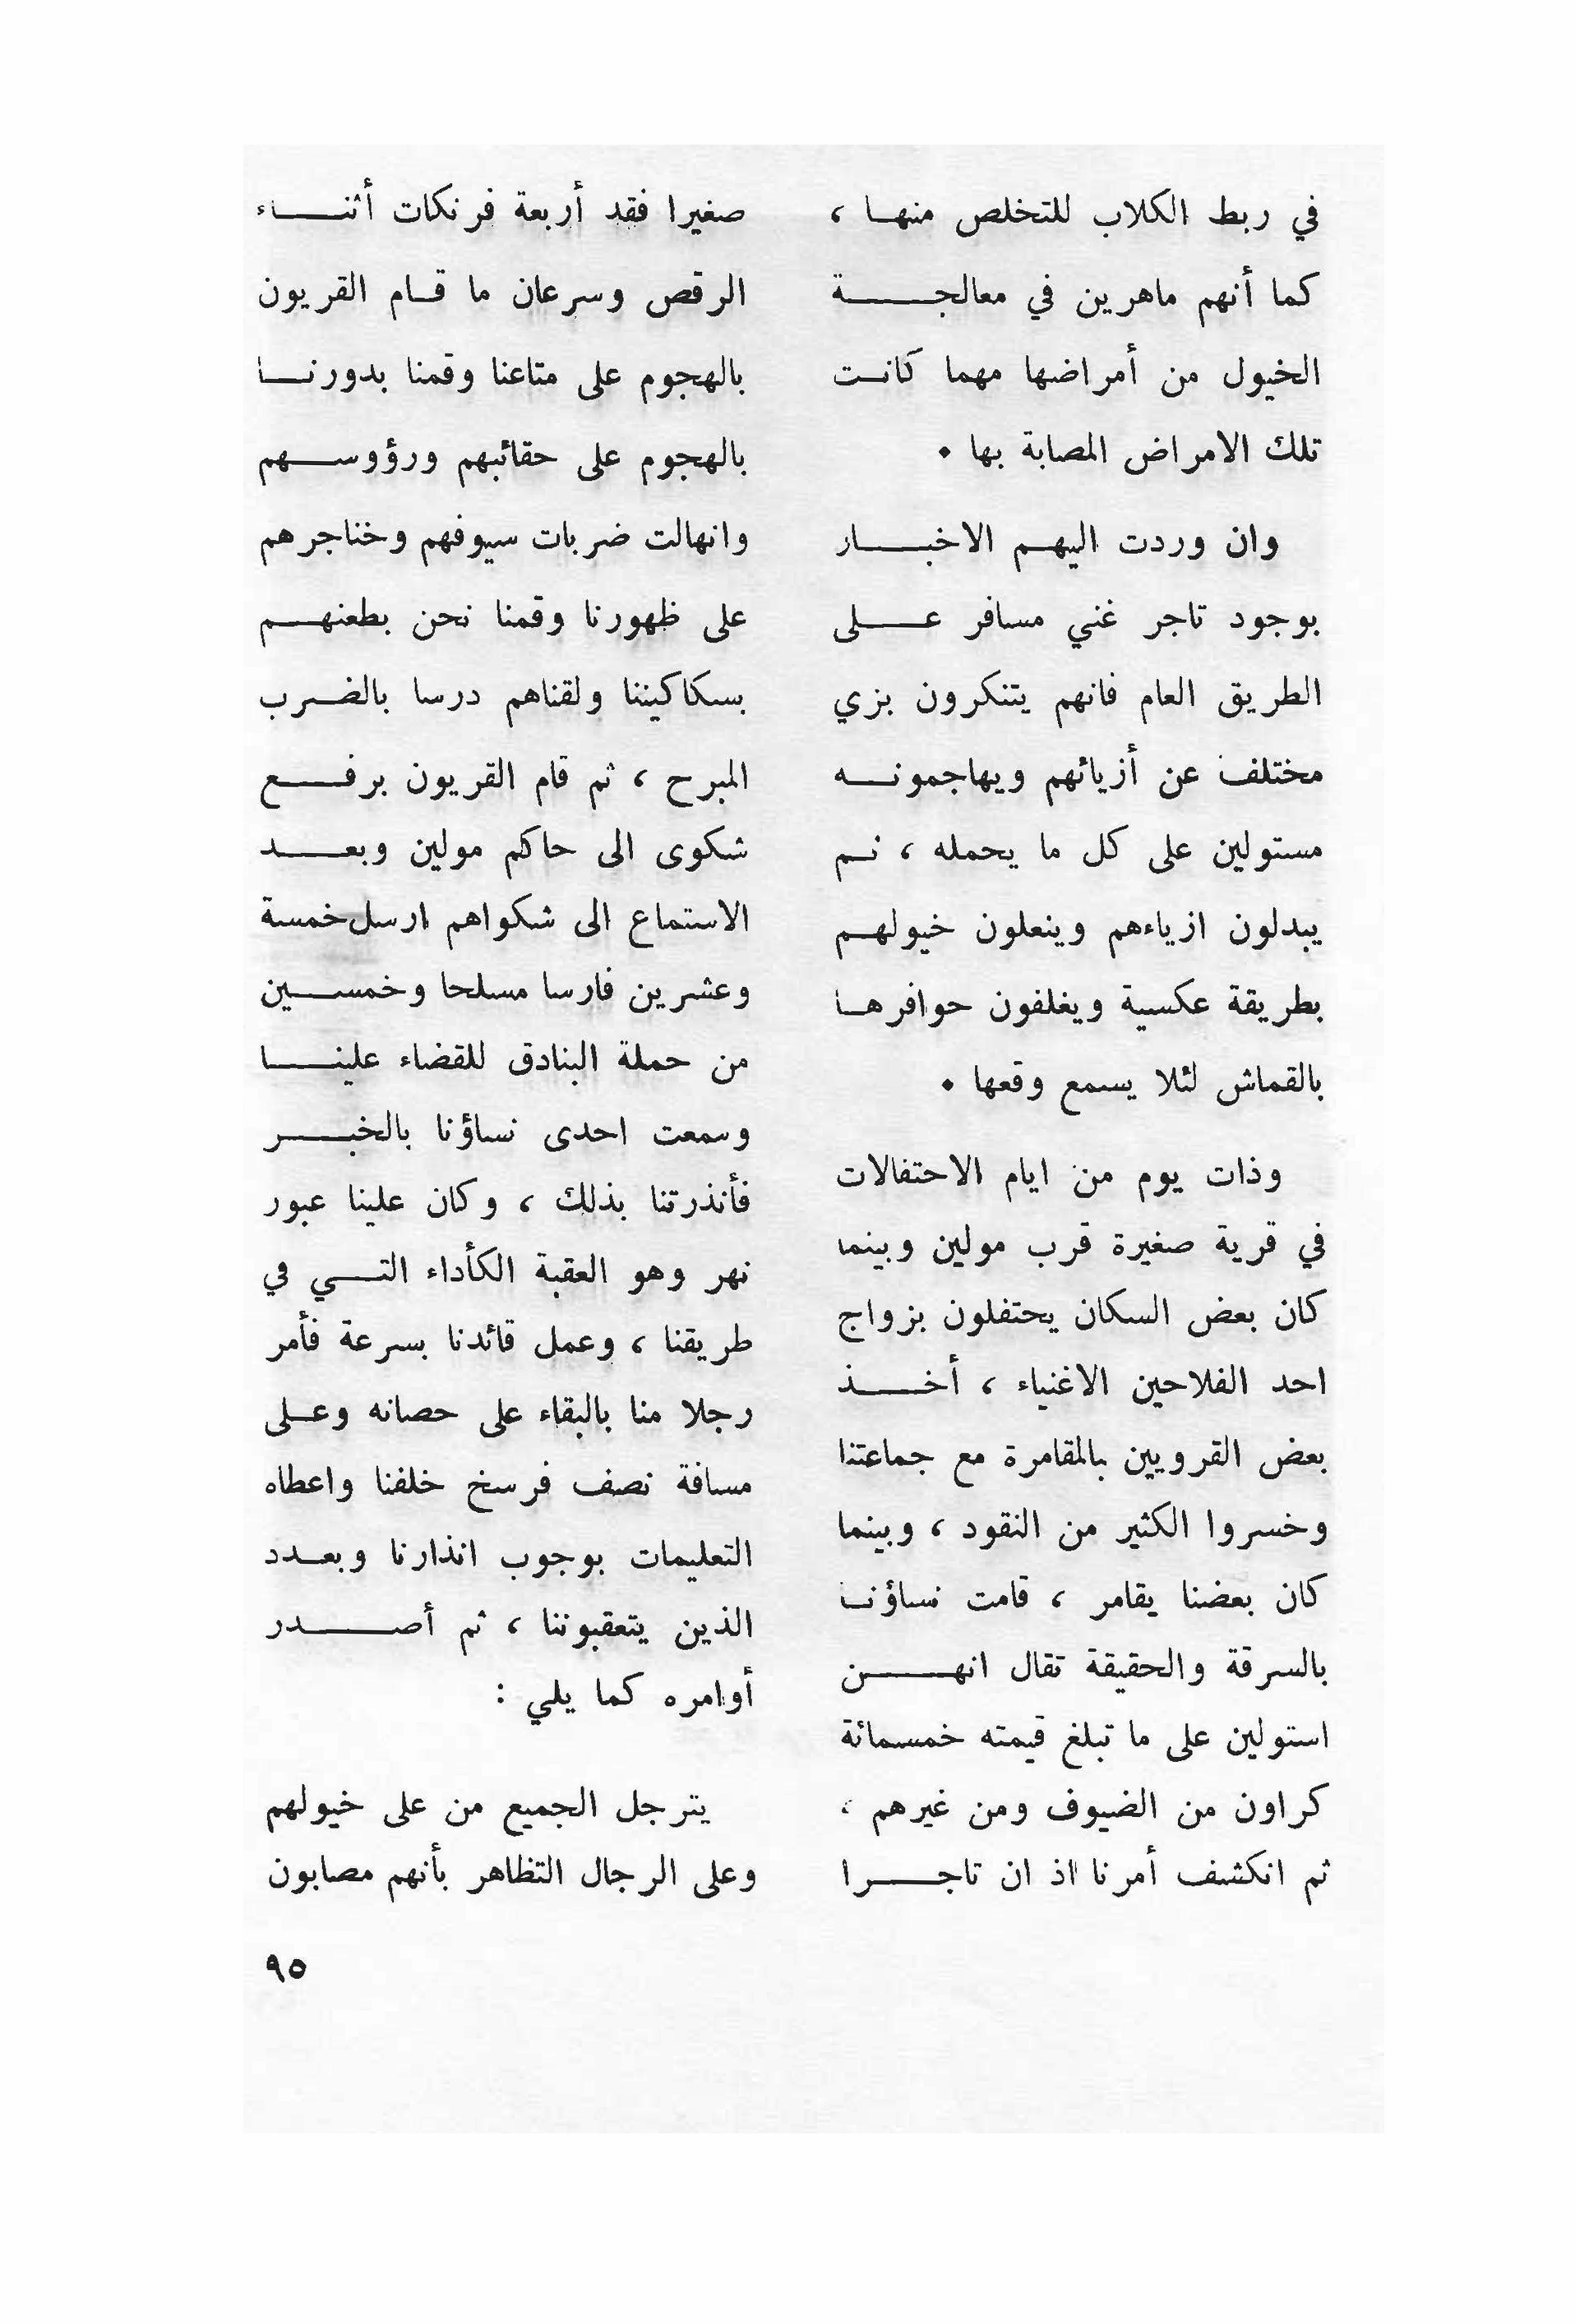 في ربط الكلاب للتخلص منها ،
كما أنهم ماهرين في معالجة
الخيول من أمراضها مهما كانت
تلك الامراض المصابة بها .
وان وردت اليهم الاخبار
بوجود تاجر غني مسافر على
الطريق العام فانهم يتنكرون بزي
مختلف عن أزيائهم ويهاجمونه
مستولين على كل ما يحمله ، ثم
يبدلون ازياءهم وينعلون خيولهم
بطريقة عكسية ويغلفون حوافرها
بالقماش لئلا يسمع وقعها .
وذات يوم من ايام الاحتفالات
في قرية صغيرة قرب مولين وبينما
كان بعض السكان يحتفلون بزواج
احد الفلاحين الاغنياء ، أخذ
بعض القرويين بالمقامرة مع جماعتنا
وخسروا الكثير من النقود ، وبينما
كان بعضنا يقامر ، قامت نساؤنا
بالسرقة والحقيقة تقال انهن
استولين على ما تبلغ قيمته خمسمائة
كراون من الضيوف ومن غيرهم ،
ثم انكشف أمرنا اذ ان تاجرا
صغيرا فقد أربعة فرنكات أثناء
الرقص وسرعان ما قام القريون
بالهجوم على متاعنا وقمنا بدورنا
بالهجوم على حقائبهم ورؤوسهم
وانهالت ضربات سيوفهم وخناجرهم
على ظهورنا وقمنا نحن بطعنهم
بسكاكيننا ولقناهم درسا بالضرب
المبرح ، ثم قام القريون برفع
شكوى الى حاكم مولين وبعد
الاستماع الى شكواهم ارسل خمسة
وعشرين فارسا مسلحا وخمسين
من حملة البنادق للقضاء علينا
وسمعت احدى نساؤنا بالخبر
فأنذرتنا بذلك ، وكان علينا عبور
نهر وهو العقبة الكأداء التي في
طريقنا ، وعمل قائدنا بسرعة فأمر
رجلا منا بالبقاء على حصانه وعلى
مسافة نصف فرسخ خلفنا واعطاه
التعليمات بوجوب انذارنا وبعدد
الذين يتعقبوننا ، ثم أصدر
أوامره كما يلي :
يترجل الجميع من على خيولهم
وعلى الرجال التظاهر بأنهم مصابون
٩٥